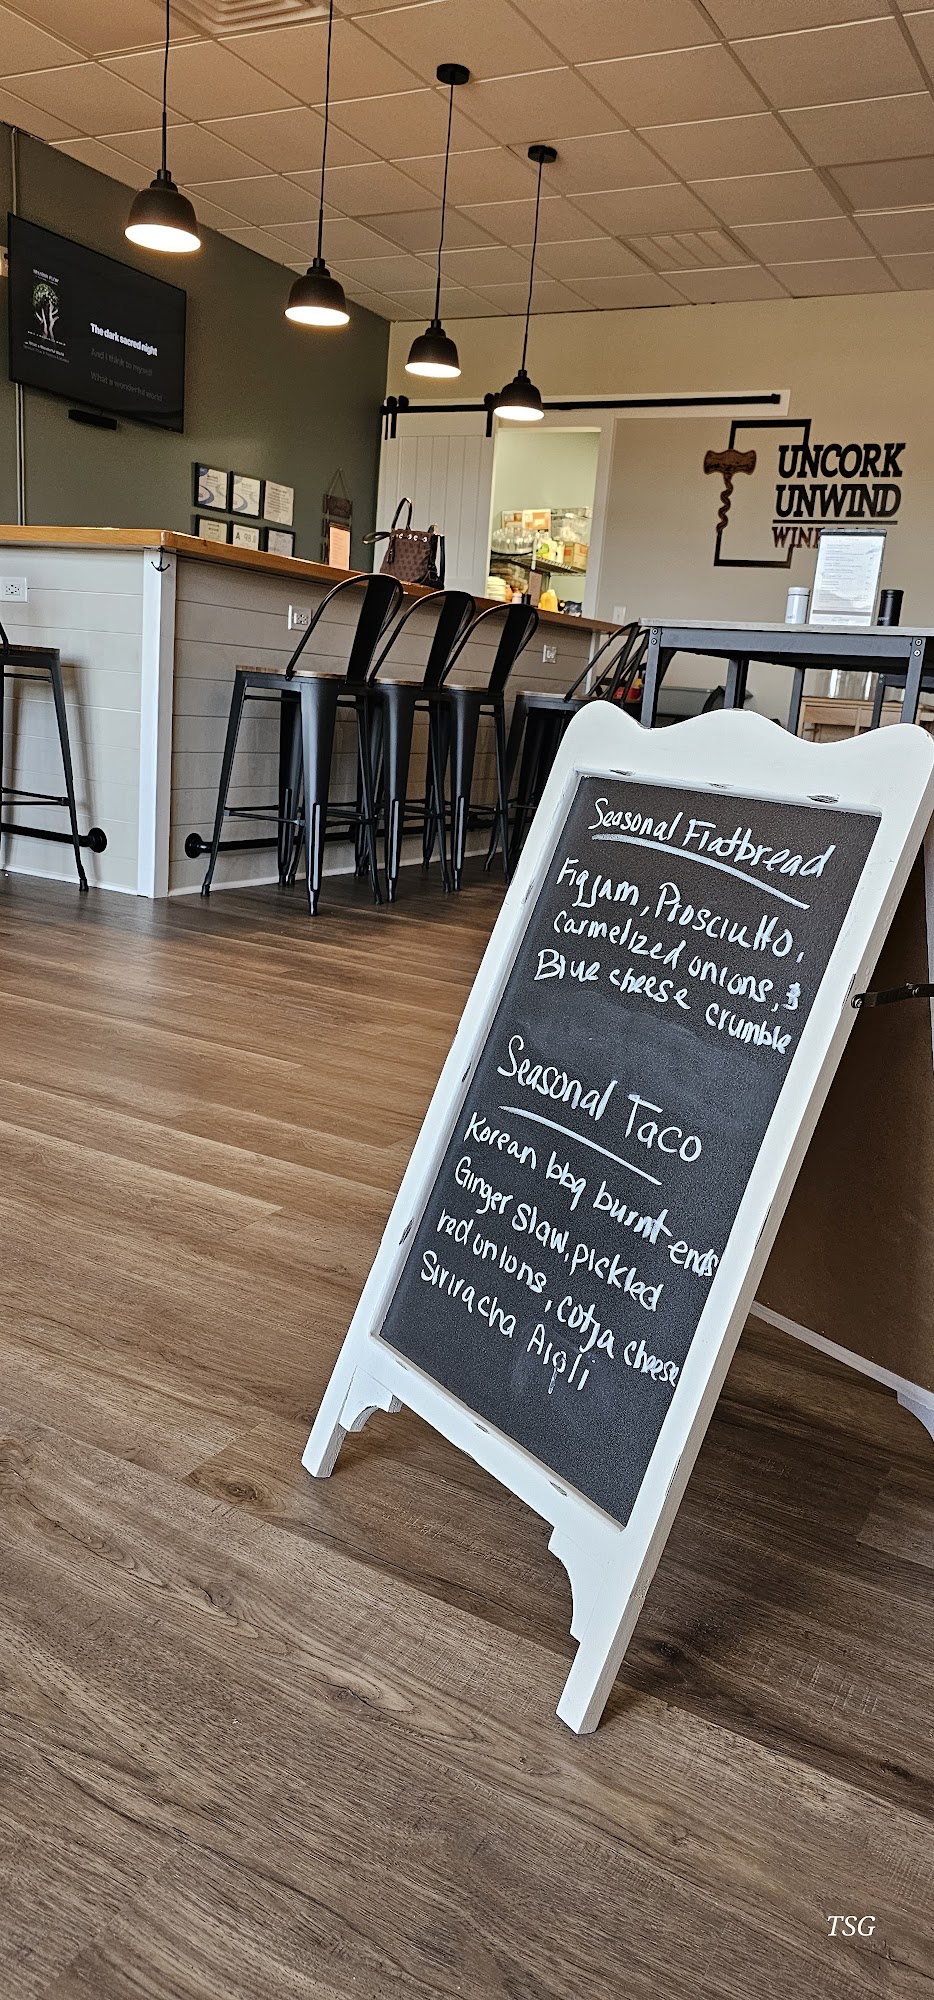 The dark sacred night
And I think to myself
What a wonderful world
UNCORK
UNWIND
Seasonal Flatbread
Fig jam, Prosciutto,
carmelized onions, &
Blue cheese crumble
Seasonal Taco
Korean bbq burnt ends
Ginger slaw, pickled
red onions, cotja cheese
Sriracha Aioli
TSG